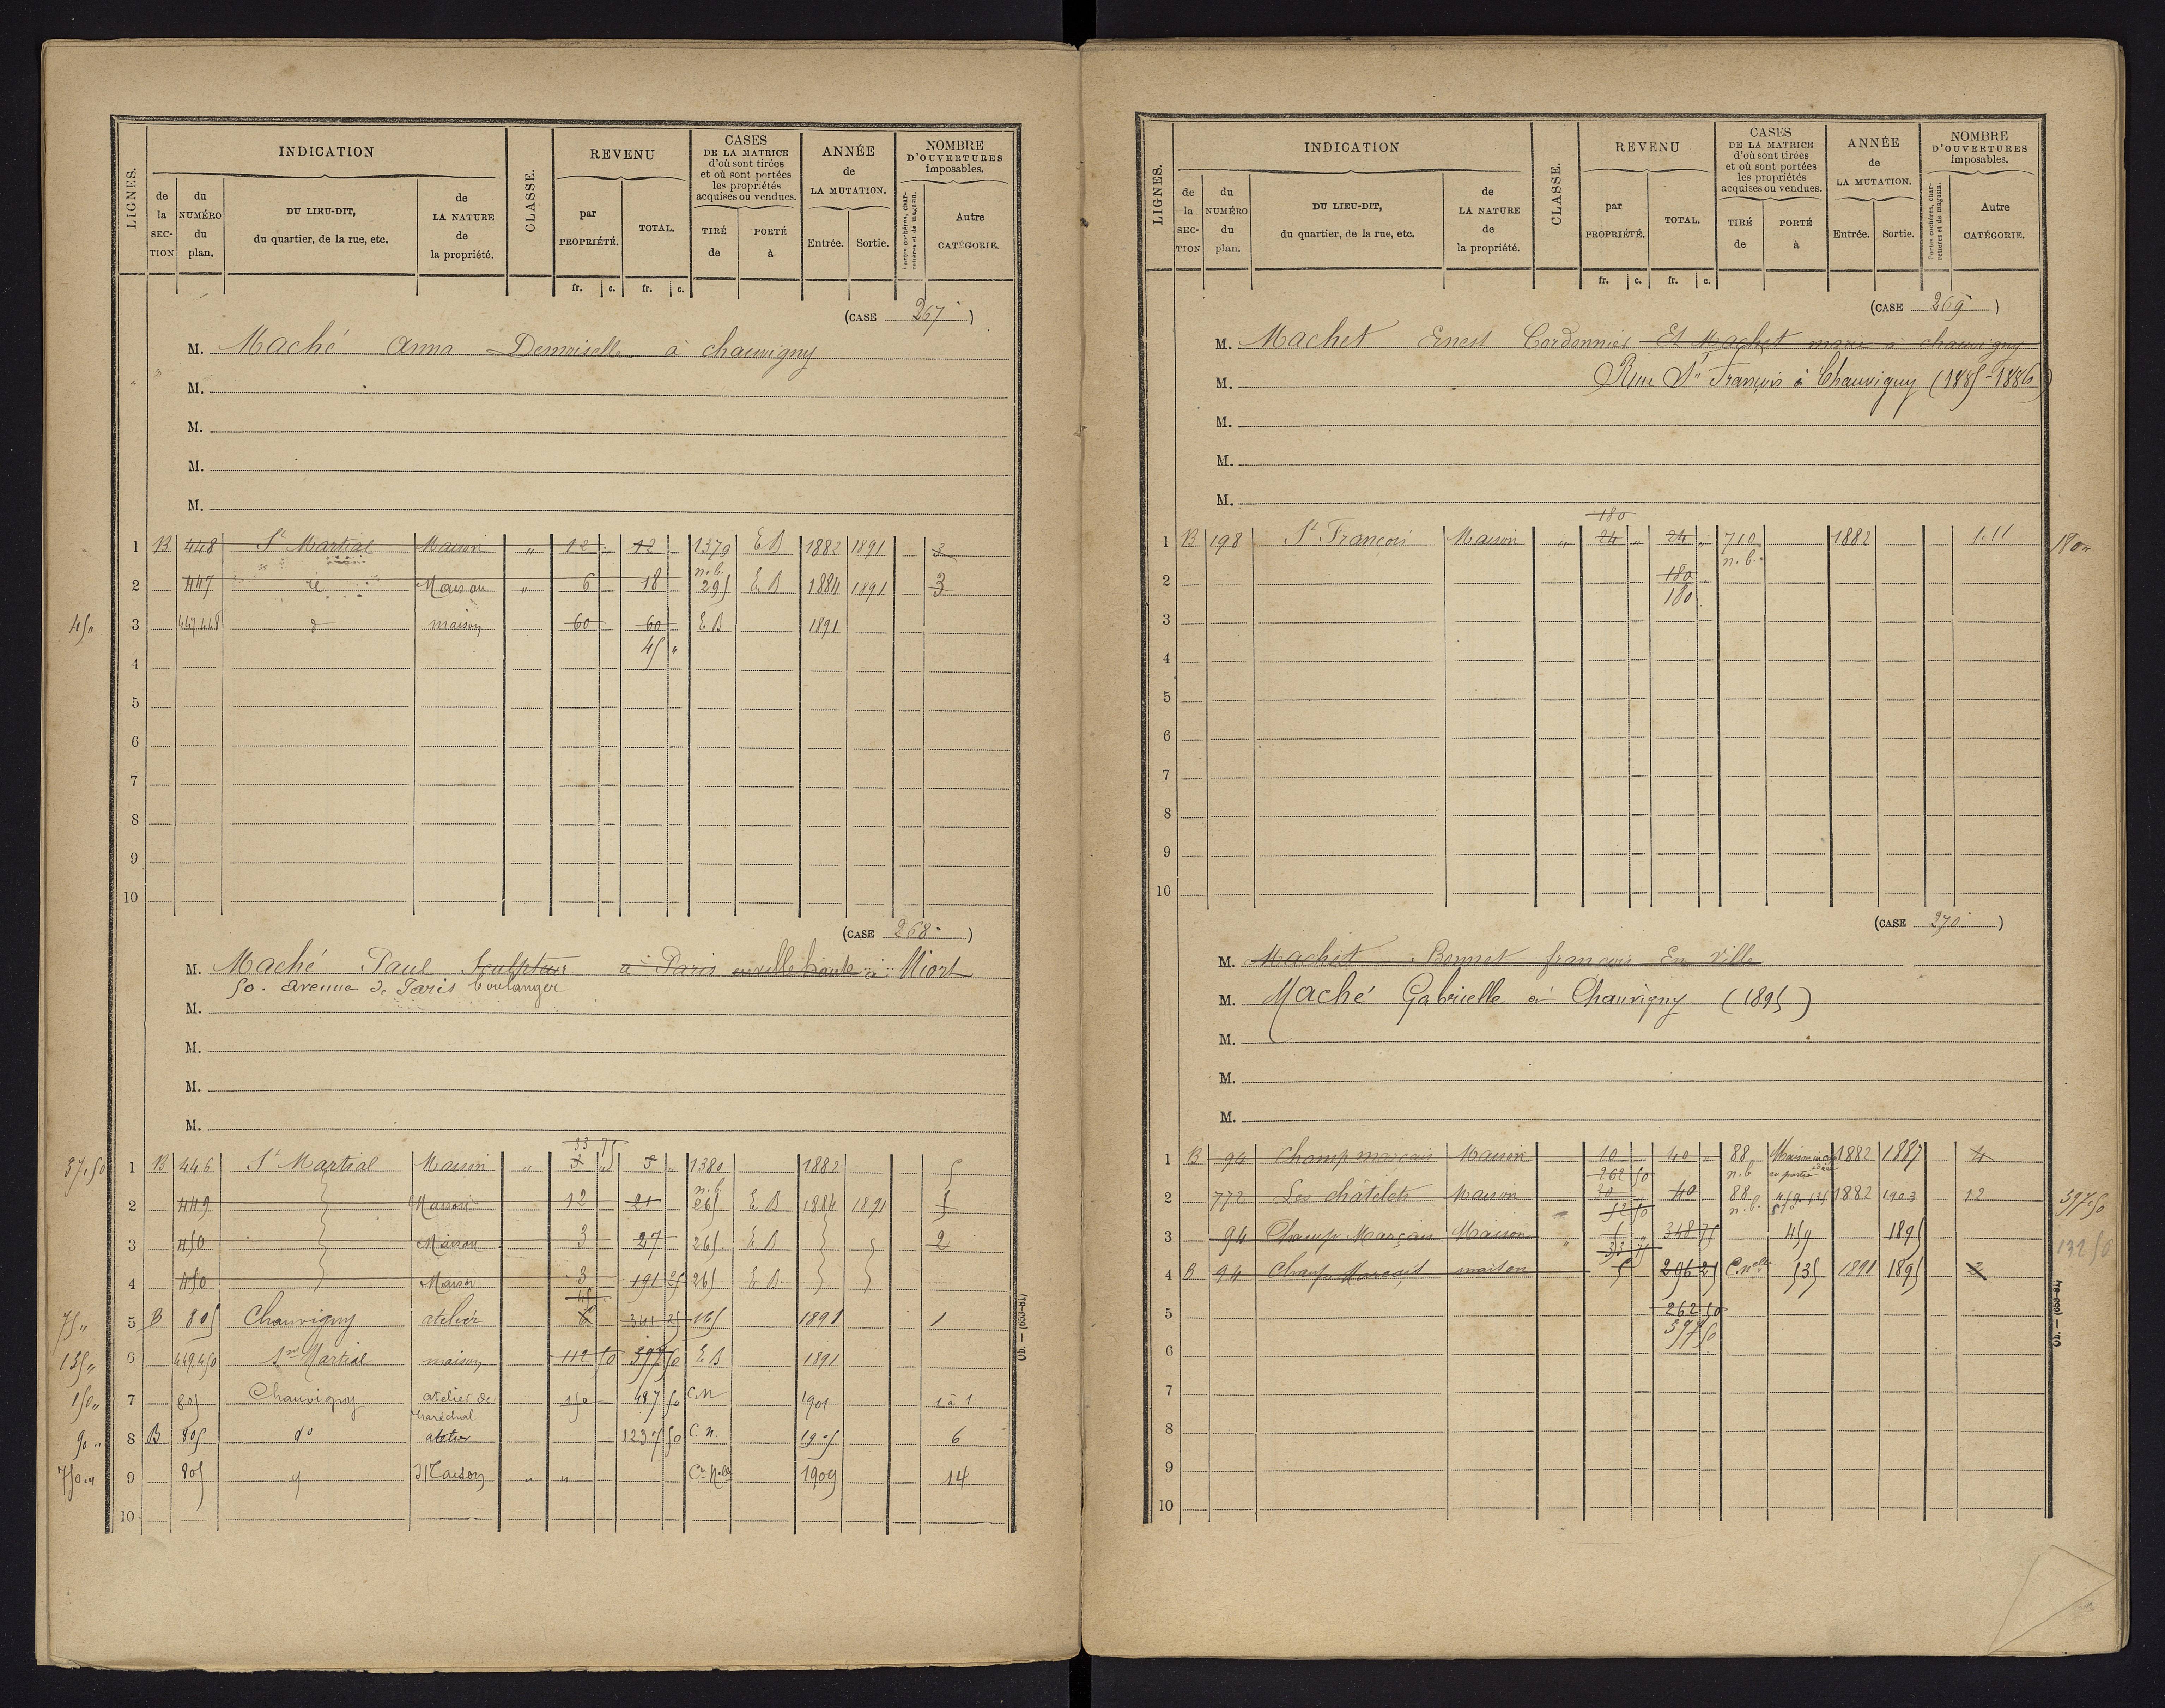 LIGNES.
INDICATION
de la SECTION
du NUMÉRO du plan.
DU LIEU-DIT, du quartier, de la rue, etc.
de LA NATURE de la propriété.
CLASSE.
REVENU
par PROPRIÉTÉ.
TOTAL.
fr. c. fr. c.
CASES DE LA MATRICE d'où sont tirées et où sont portées les propriétés acquises ou vendues.
TIRÉ de
PORTÉ à
ANNÉE de LA MUTATION.
Entrée. Sortie.
NOMBRE D'OUVERTURES imposables.
Portes cochères, charretières et de magasin.
Autre CATÉGORIE.
(CASE 267)
M. Maché Anna Demoiselle à chauvigny
M.
M.
M.
M.
1 B 448 St Martial Maison " 12 12 1379 E B 1882 1891 3
n.b.
2 447 Maison " 6 18 295 E B 1884 1891 3
450 3 447 448 d maison 60 60 E.B 1891
45 "
4
5
6
7
8
9
10
(CASE 268)
M. Maché Paul Sculpteur à Paris en ville haute à Niort
50. avenue de Paris boulanger
M.
M.
M.
M.
33 75
37,50 1 B 446 St Martial Maison " 3 " 3 " 1380 1882 5
n.b.
2 449 Maison 12 21 265 E B 1884 1891
3 450 Maison 3 27 265 E B 2
4 450 Maison 3 191 25 265 E B
45
75 " 5 B 805 Chauvigny atelier 341 25 165 1891 1
135 " 6 449.450 St Martial maison 112 50 397 50 E B 1891
150 " 7 805 Chauvigny atelier de maréchal 150 487 50 C.N 1901 1 à 1
90 " 8 B 805 do atelier 1237 50 C.N. 1905 6
750 " 9 805 " Maison " " Cn Nelle 1909 14
10
Ob. — (653-81)
LIGNES.
INDICATION
de la SECTION
du NUMÉRO du plan.
DU LIEU-DIT, du quartier, de la rue, etc.
de LA NATURE de la propriété.
CLASSE.
REVENU
par PROPRIÉTÉ.
TOTAL.
fr. c. fr. c.
CASES DE LA MATRICE d'où sont tirées et où sont portées les propriétés acquises ou vendues.
TIRÉ de
PORTÉ à
ANNÉE de LA MUTATION.
Entrée. Sortie.
NOMBRE D'OUVERTURES imposables.
Portes cochères, charretières et de magasin.
Autre CATÉGORIE.
(CASE 269)
M. Machet Ernest Cordonnier Et Machet marie à chauvigny
M. Rue St François à Chauvigny (1885-1886)
M.
M.
M.
180
1 B 198 St François Maison " 24 " 24 " 710 1882 1.11 180 "
n.b.
2 180
180
3
4
5
6
7
8
9
10
(CASE 270)
M. Machet Bonnet françois En Ville
M. Maché Gabrielle à Chauvigny (1895)
M.
M.
M.
1 B 94 Champ marçais Maison 10 40 " 88 Maison en partie 1882 1887 4
262 50 n.b.
2 772 Les châtelets Maison 30 40 88 1882 1903 12 397,50
52 50 n.b.
3 94 Champ Marçais Maison " 348 75 459 1895 132 50
33 75
4 B 94 Champ Marçais maison 5 296 25 C.nelle 535 1891 1895 2
5 262 50
397 50
6
7
8
9
10
Ob. — (653-81)